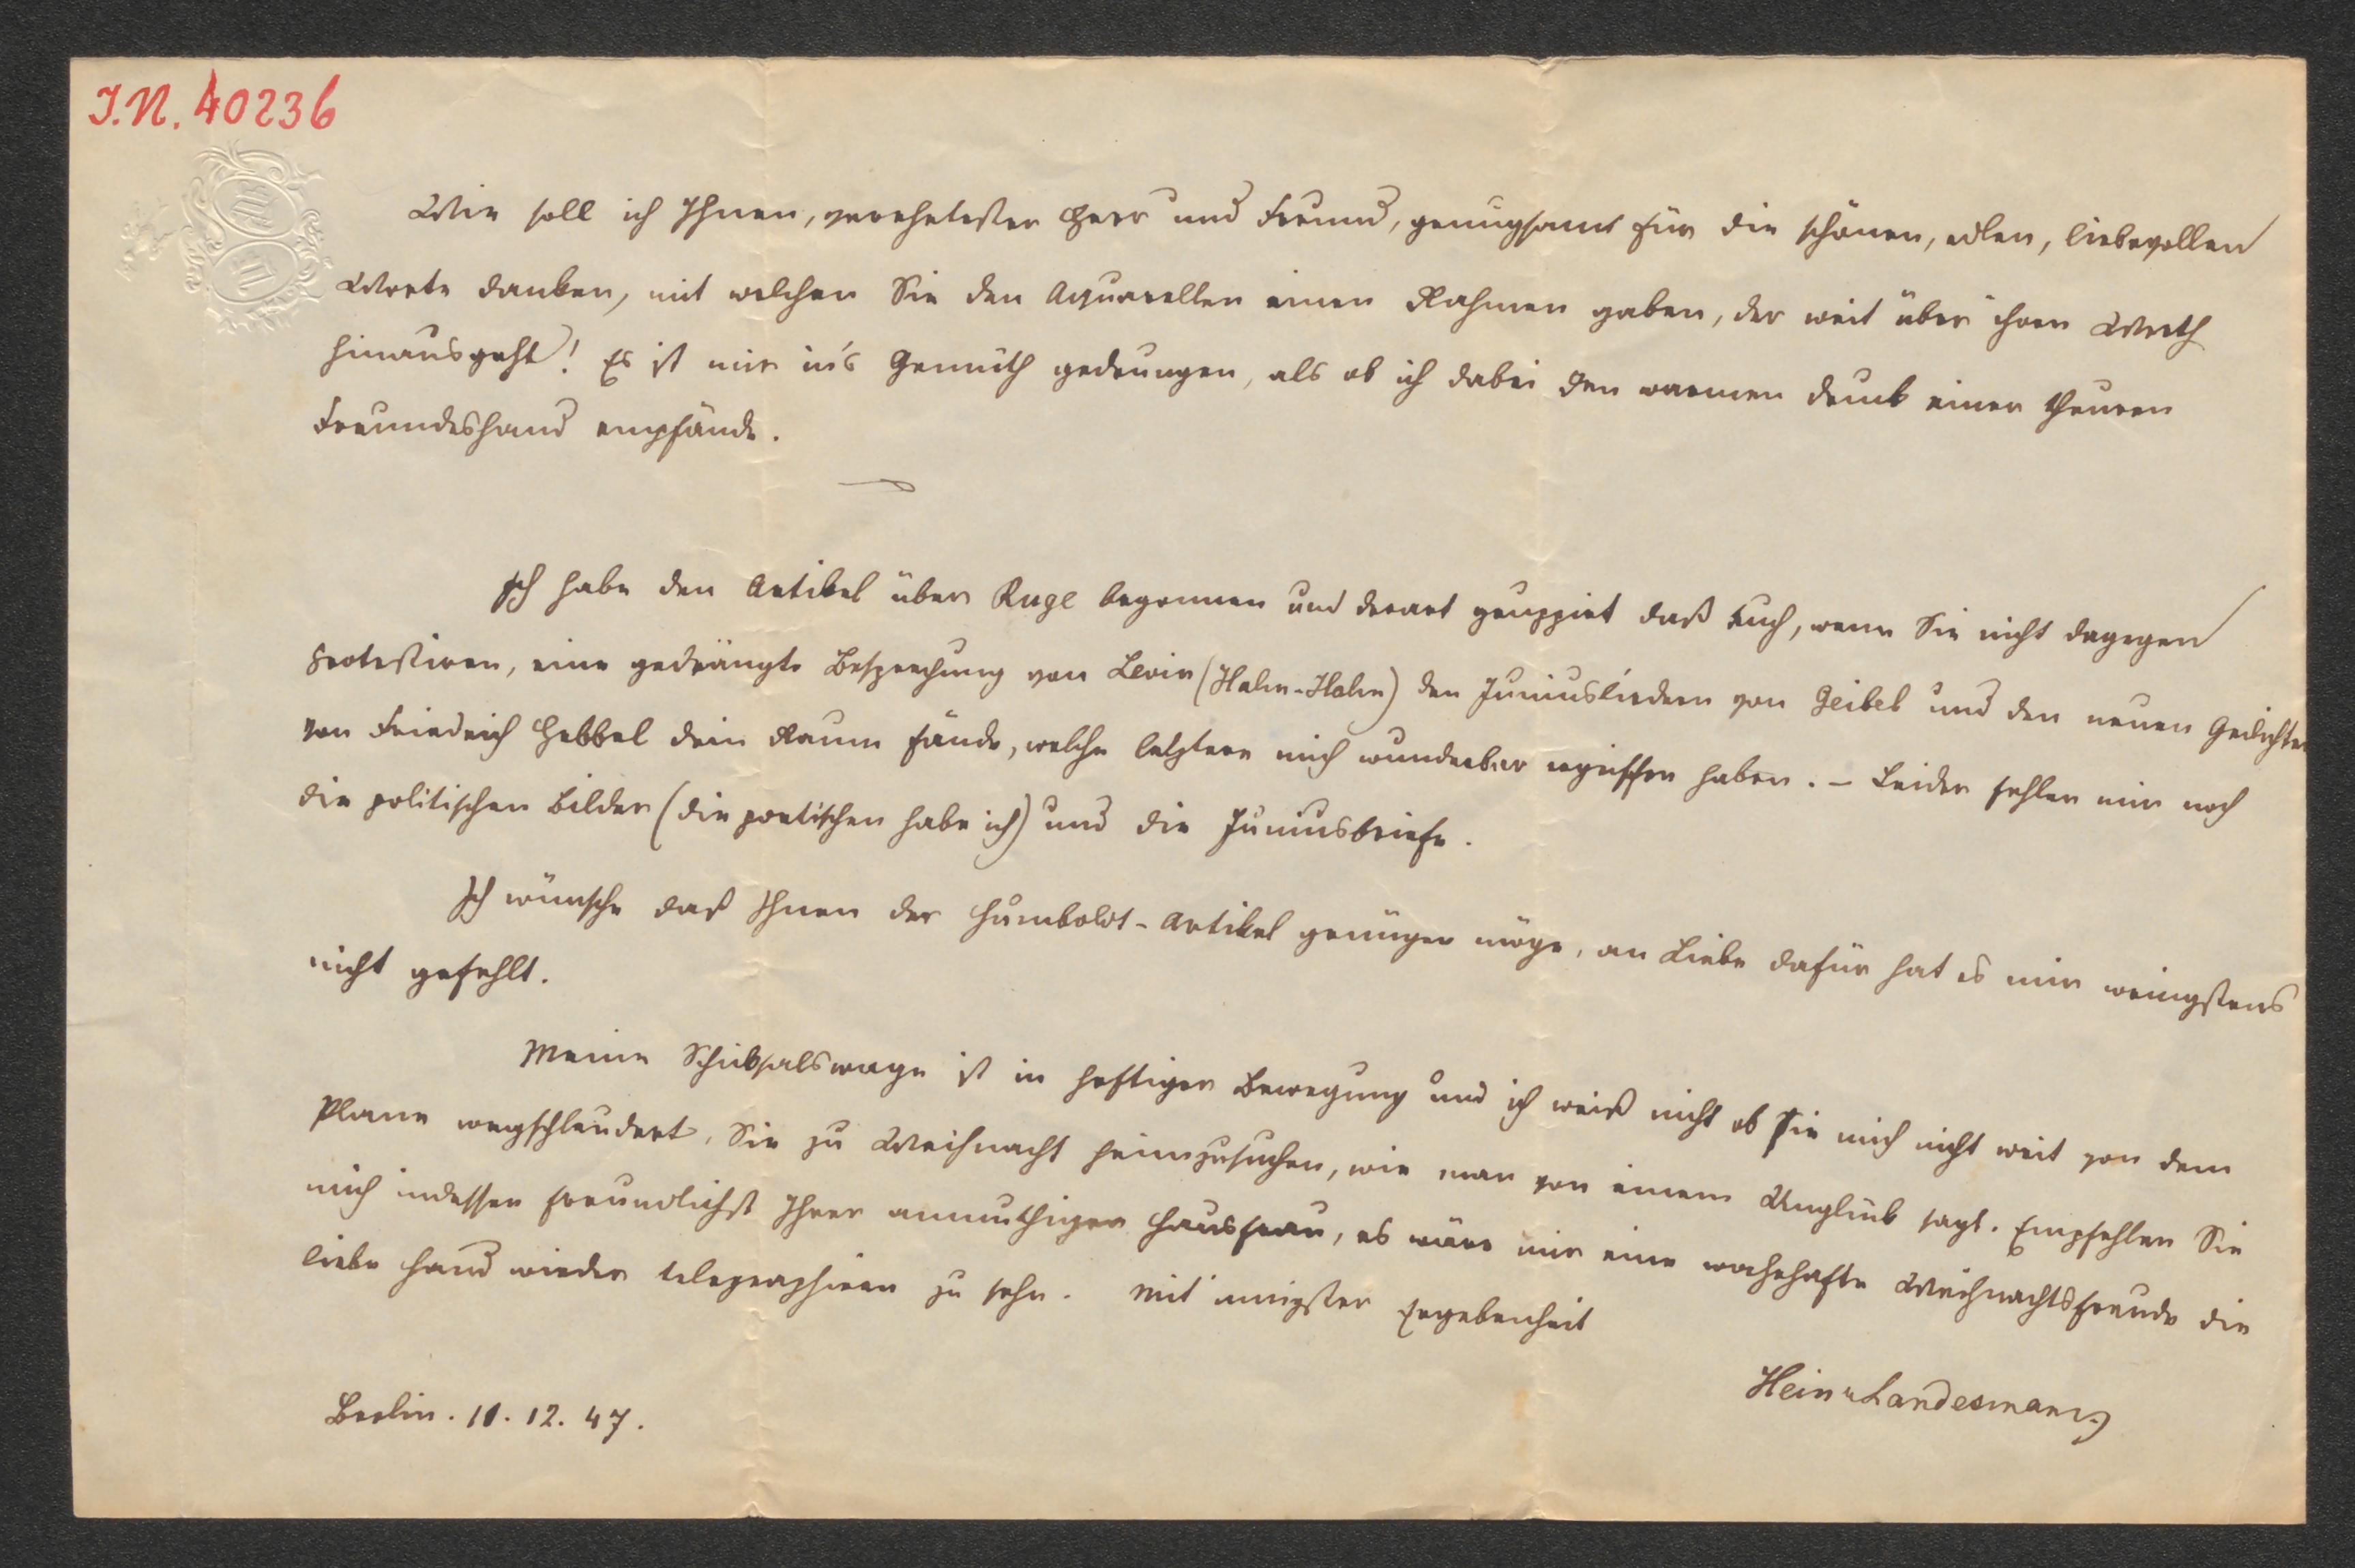 I.N. 40236
Wie soll ich Ihnen, verehrtester Herr und Freund, genugsam für die schönen, edlen, liebevollen
Worte danken, mit welchen Sie den Aquarellen einen Rahmen gaben, der weit über ihren Werth
hinausgeht! Es ist mir in's Gemüth gedrungen, als ob ich dabei den warmen Druck einer theuren
Freundeshand empfände.
Ich habe den Artikel über Ruge begonnen und derart gruppirt daß auch, wenn Sie nicht dagegen
protestiren, eine gedrängte Besprechung von Levin (Hahn-Hahn) den Juniusliedern von Geibel und den neuen Gedichten
von Friedrich Hebbel drin Raum fände, welche letztere mich wunderbar ergriffen haben. – Leider fehlen mir noch
die politischen Bilder (die poetischen habe ich) und die Juniusbriefe.
Ich wünsche daß Ihnen der Humboldt-Artikel genügen möge, an Liebe dafür hat es mir wenigstens
nicht gefehlt.
Meine Schicksalswage ist in heftiger Bewegung und ich weiß nicht ob sie mich nicht weit von dem
Plane wegschleudert, Sie zu Weihnacht heimzusuchen, wie man von einem Unglück sagt. Empfehlen Sie
mich indessen freundlichst Ihrer anmuthigen Hausfrau, es wäre mir eine wahrhafte Weihnachtsfreude die
liebe Hand wieder telegraphiren zu sehn. Mit innigster Ergebenheit
Hein Landesmann
Berlin. 11. 12. 47.